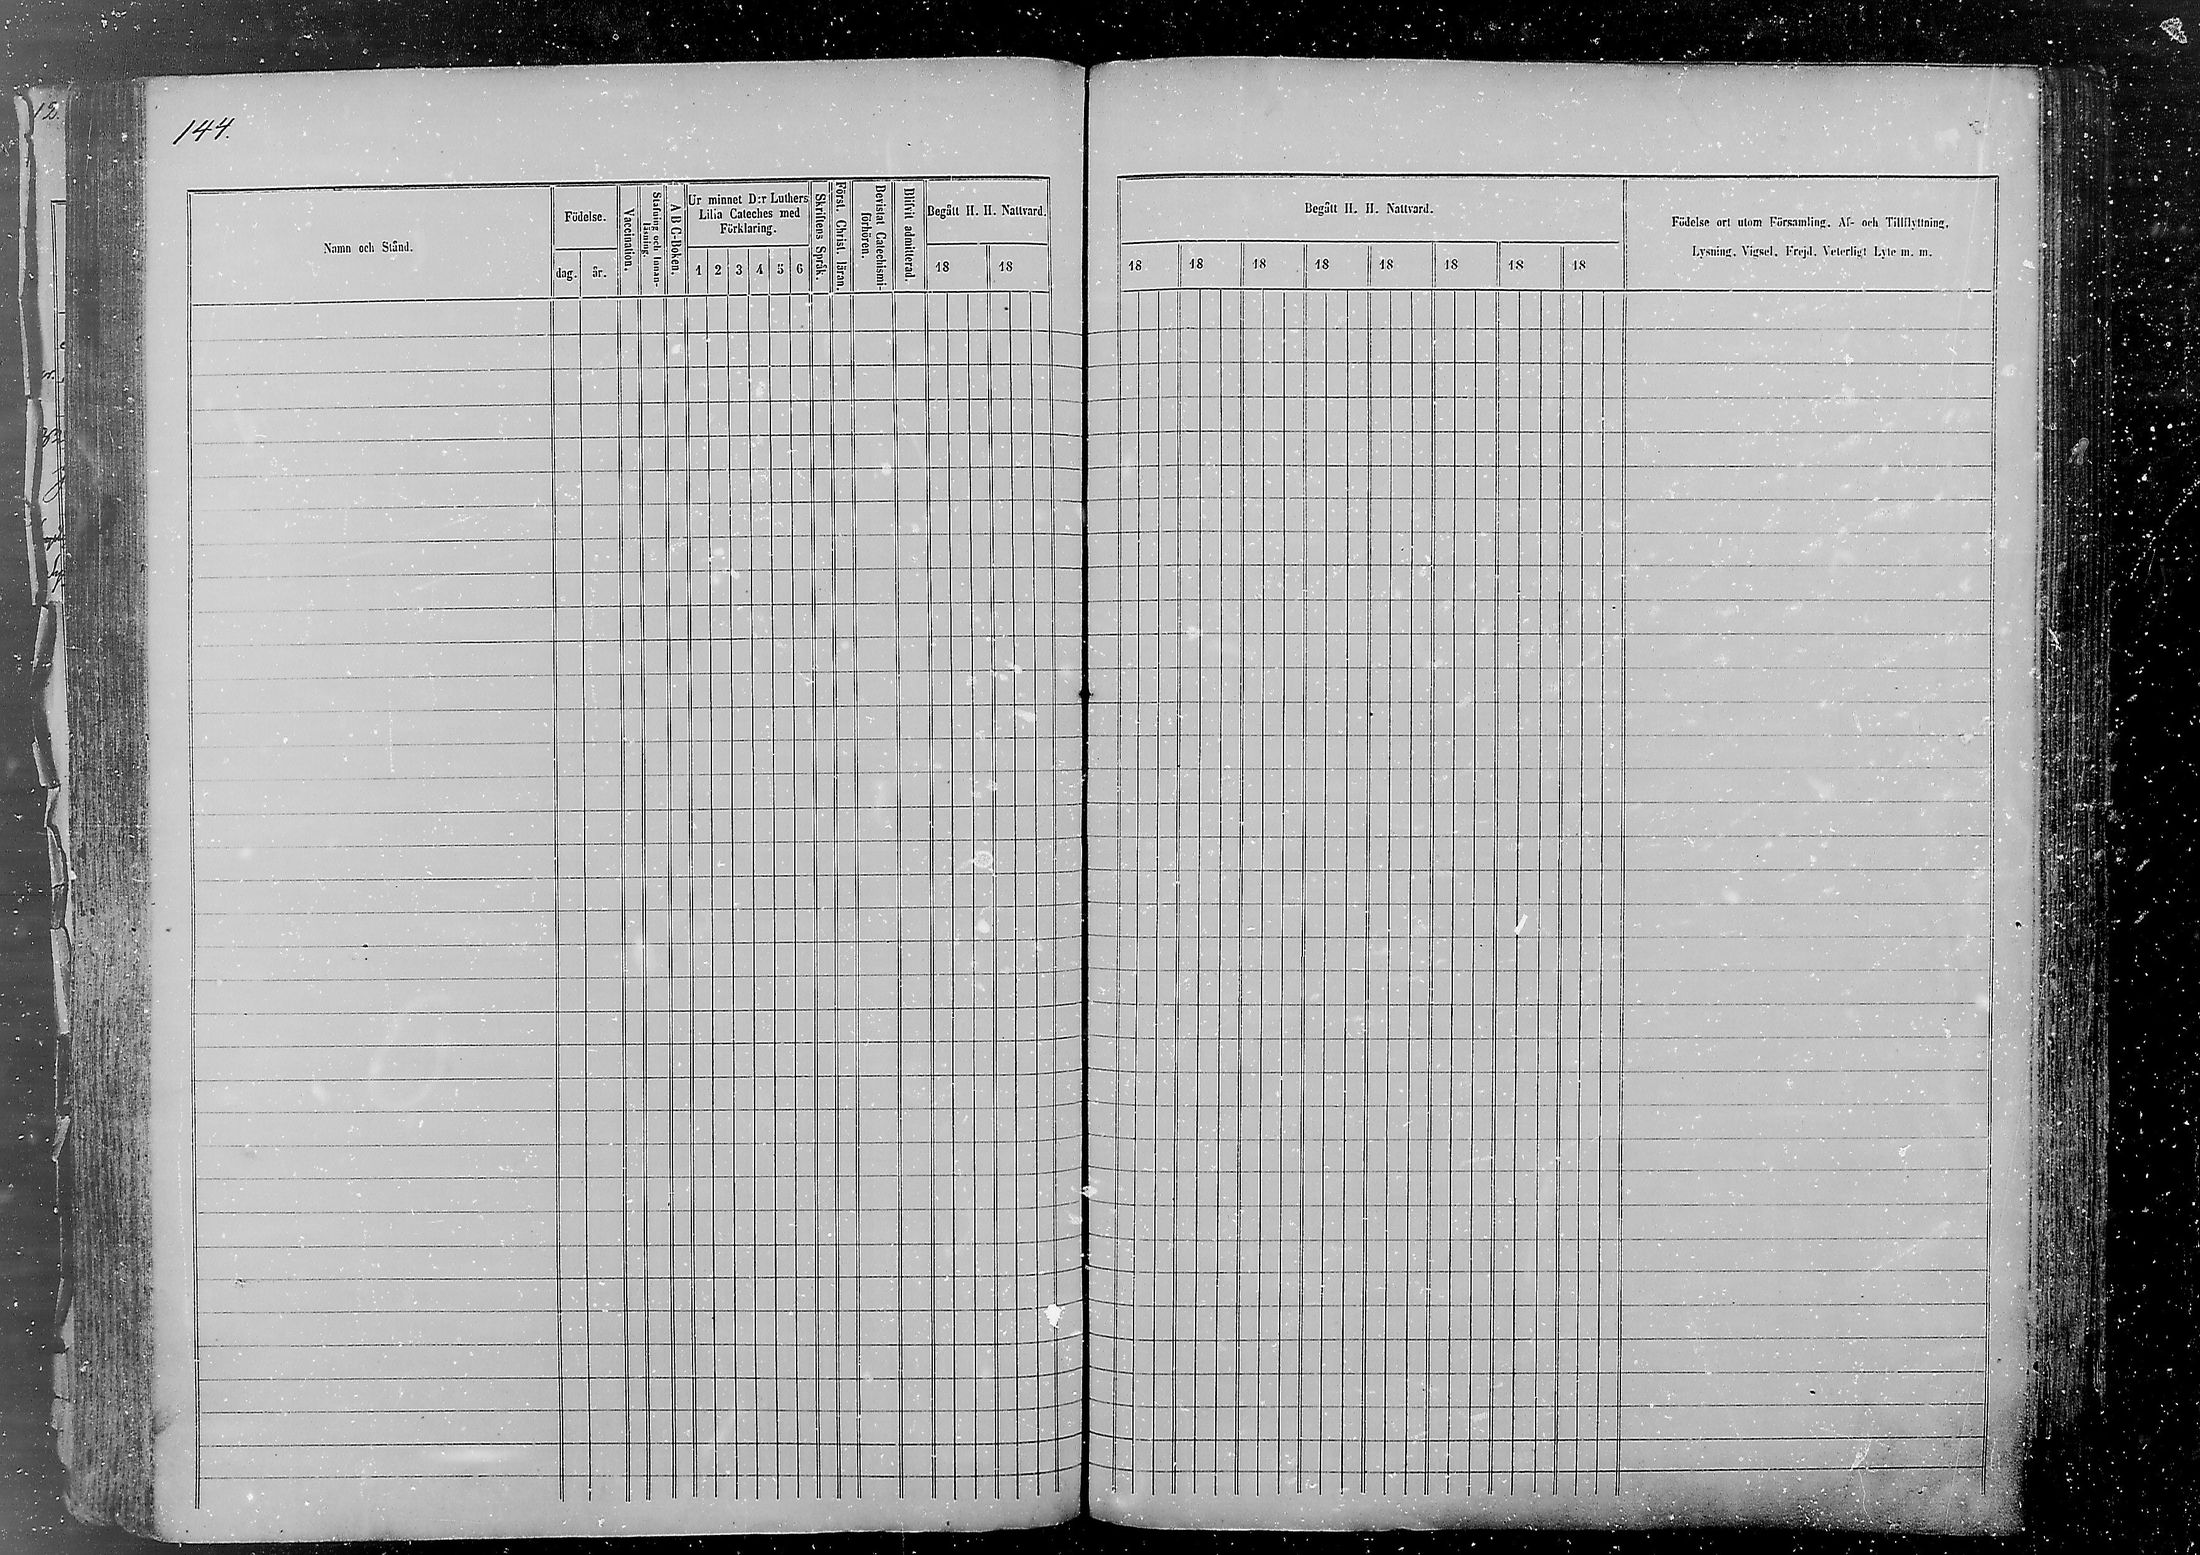 144.
Namn och Stånd.
Födelse.
dag.
år.
Vaccination.
Stafning och Innan-
läsning.
A B C-Boken.
Ur minnet D:r Luthers
Lilla Cateches med
Förklaring.
1 2 3 4 5 6
Skriftens Språk.
Först. Christ. läran.
Bevistat Catechismi-
förhören.
Blifvit admitterad.
Begått H. H. Nattvard.
18 18
Begått H. H. Nattvard.
18 18 18 18 18 18 18 18
Födelse ort utom Församling. Af- och Tillflyttning,
Lysning, Vigsel, Frejd, Veterligt Lyte m. m.